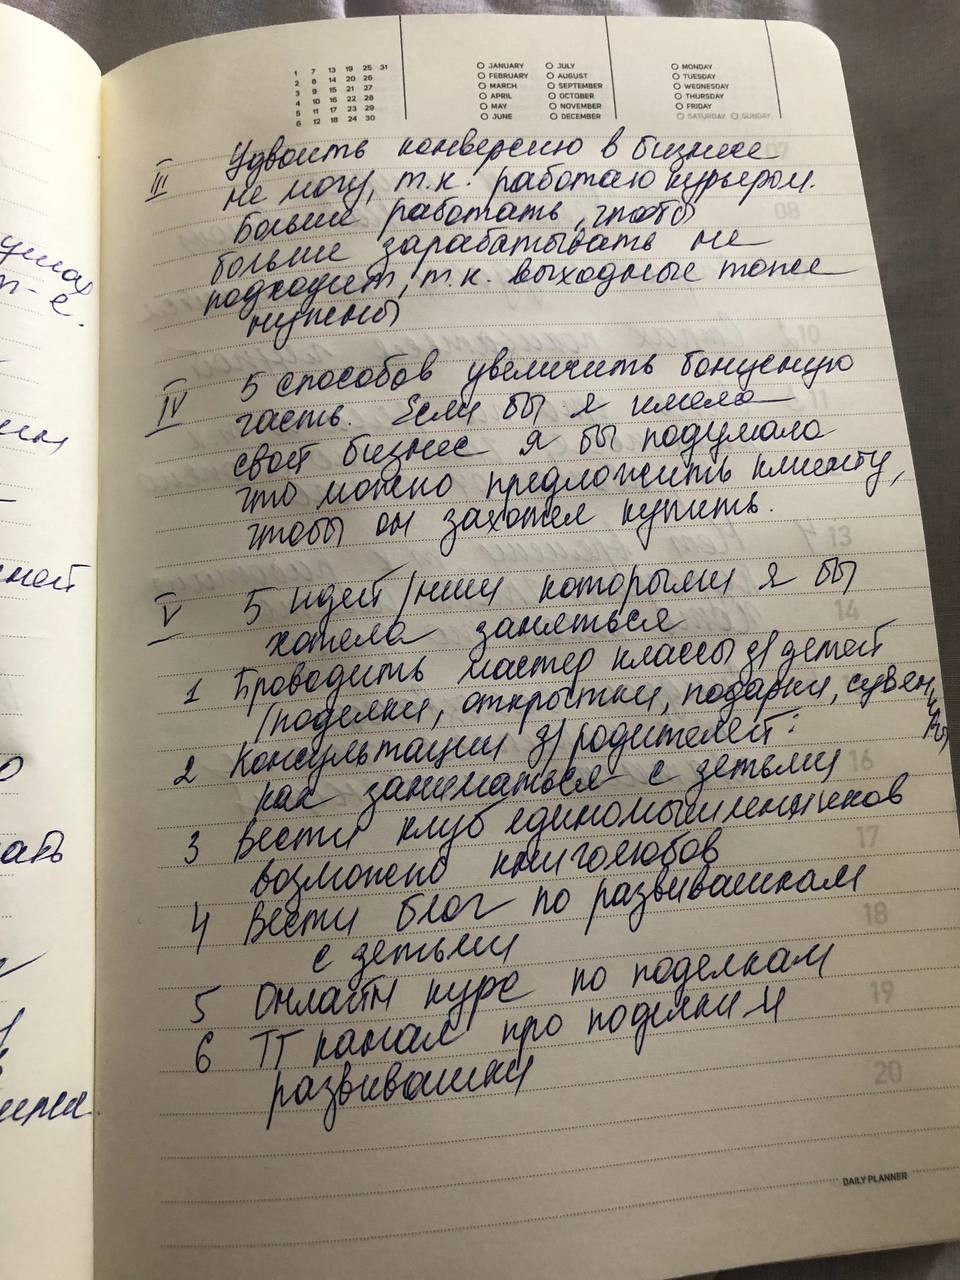 1 7 13 19 25 31
2 8 14 20 26
3 9 15 21 27
4 10 16 22 28
5 11 17 23 29
6 12 18 24 30
JANUARY JULY
FEBRUARY AUGUST
MARCH SEPTEMBER
APRIL OCTOBER
MAY NOVEMBER
JUNE DECEMBER
MONDAY
TUESDAY
WEDNESDAY
THURSDAY
FRIDAY
SATURDAY SUNDAY
III Удвоить конверсию в бизнесе
не могу, т.к. работаю курьером.
Больше работать, чтобы
больше зарабатывать не
подходит, т.к. выходные тоже
нужны
IV 5 способов увеличить бонусную
часть. Если бы я имела
свой бизнес я бы подумала
что можно предложить клиенту,
чтобы он захотел купить.
V 5 идей/ниш которыми я бы
хотела заняться
1 Проводить мастер классы д/детей
/поделки, открытки, подарки, сувениры/
2 Консультации д/родителей:
как заниматься с детьми
3 Вести клуб единомышленников
возможно книголюбов
4 Вести блог по развивашкам
с детьми
5 Онлайн курс по поделкам
6 ТГ канал про поделки и
развивашки
13
14
16
17
18
19
20
DAILY PLANNER